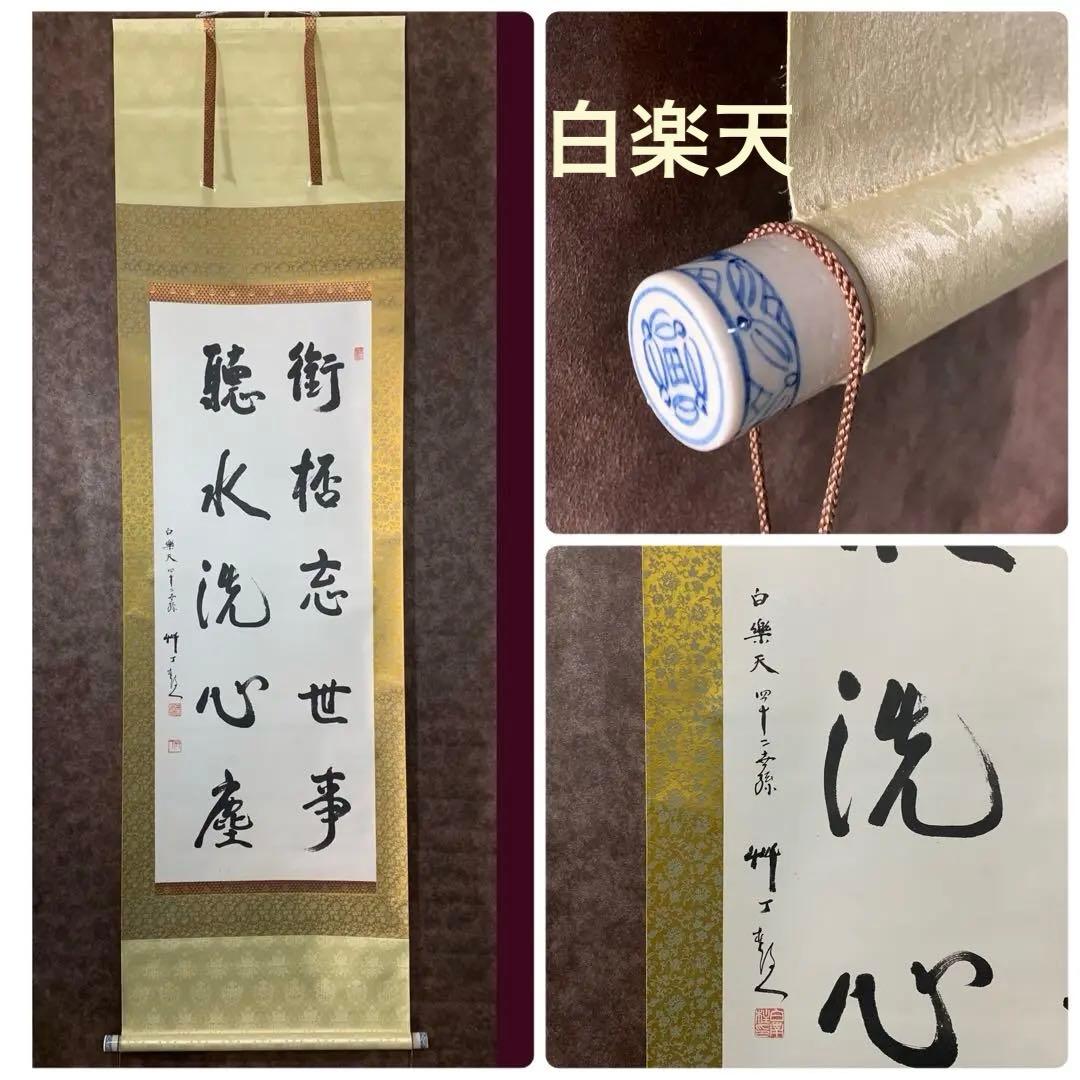 銜桮忘世事
聽水洗心塵
白樂天 四十二世孫 艸丁
白楽天
白樂天 四十二世孫
艸丁
洗心